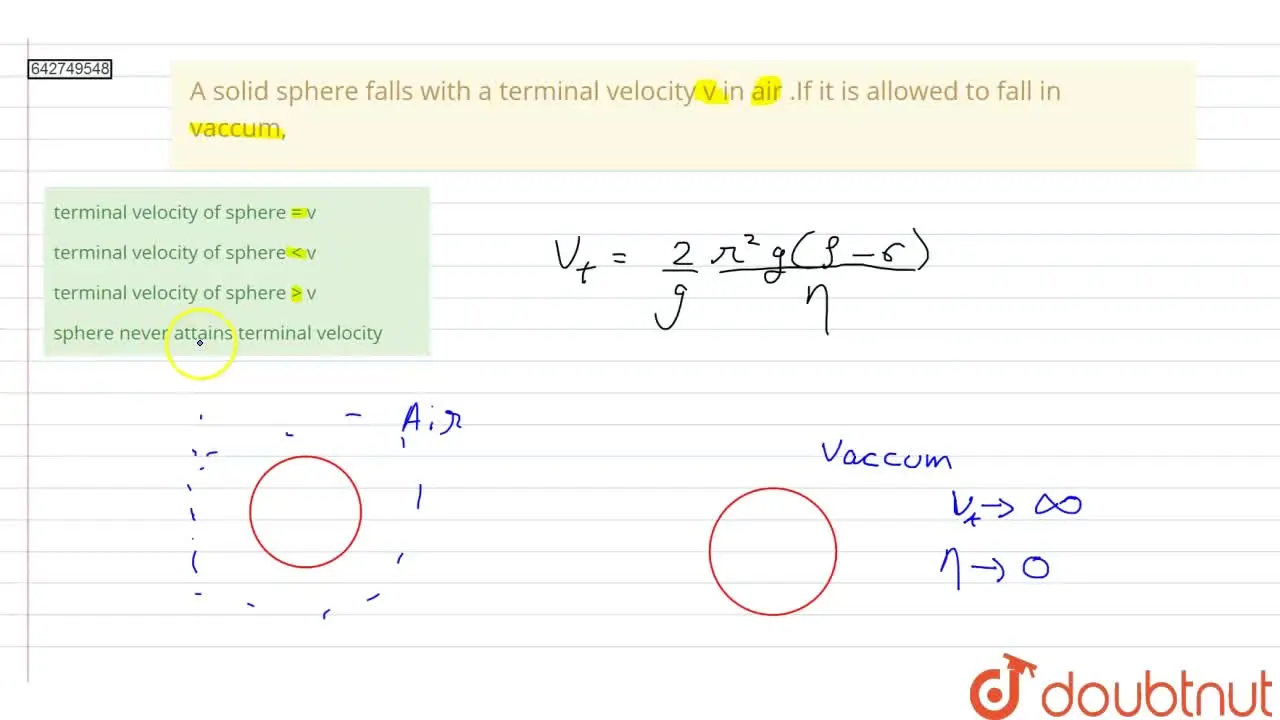 642749548
A solid sphere falls with a terminal velocity v in air .If it is allowed to fall in
vaccum,
terminal velocity of sphere = v
terminal velocity of sphere < v
terminal velocity of sphere > v
sphere never attains terminal velocity
V_t = 2/9 r² g(ρ – σ)/η
Air
Vaccum
V_t → ∞
η → 0
doubtnut